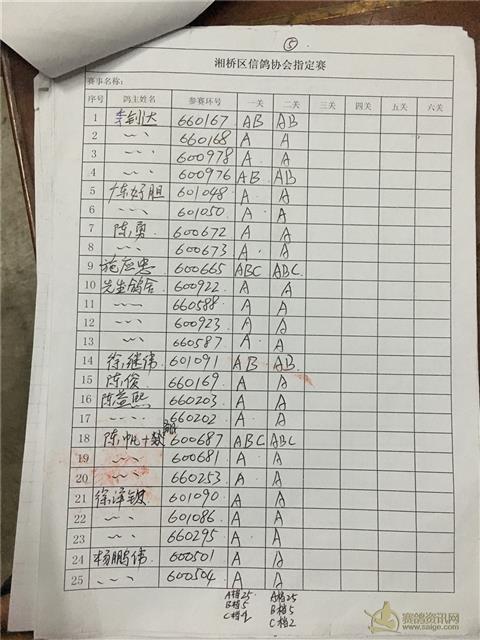 ⑤
湘桥区信鸽协会指定赛
赛事名称:
序号 鸽主姓名 参赛环号 一关 二关 三关 四关 五关 六关
1 李钊达 660167 AB AB
2 〃 660168 A A
3 〃 600978 A A
4 〃 600976 AB AB
5 陈好胆 601048 A A
6 〃 601050 A A
7 陈勇 600672 A A
8 〃 600673 A A
9 施应忠 600665 ABC ABC
10 先生鸽舍 600922 A A
11 〃 660588 A A
12 〃 600923 A A
13 〃 660587 A A
14 徐继伟 601091 AB AB
15 陈俊 660169 A A
16 陈 熙 660203 A A
17 〃 660202 A A
18 陈帆+ 600687 ABC ABC
19 〃 600681 A A
20 〃 660253 A A
21 徐泽 601090 A A
22 〃 601086 A A
23 〃 660295 A A
24 杨鹏伟 600501 A A
25 〃 600504 A A
A档25 A档25
B档5 B档5
C档2 C档2
赛鸽资讯网
www.saige.com